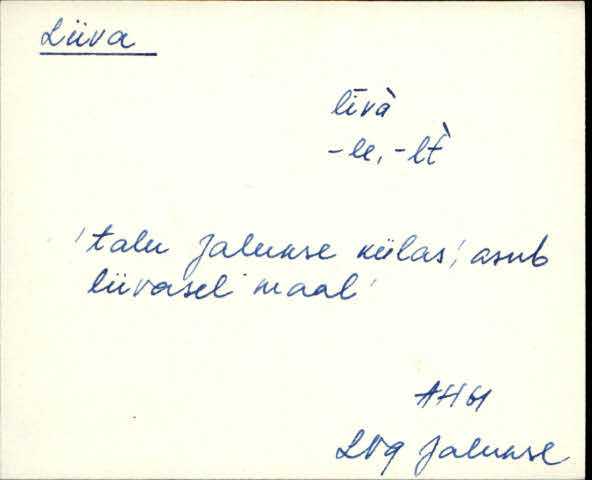 Liiva
līvà
-le, -lt̀
'talu Jalukse külas', asub
liivasel maal'
AH61
Lvg Jalukse